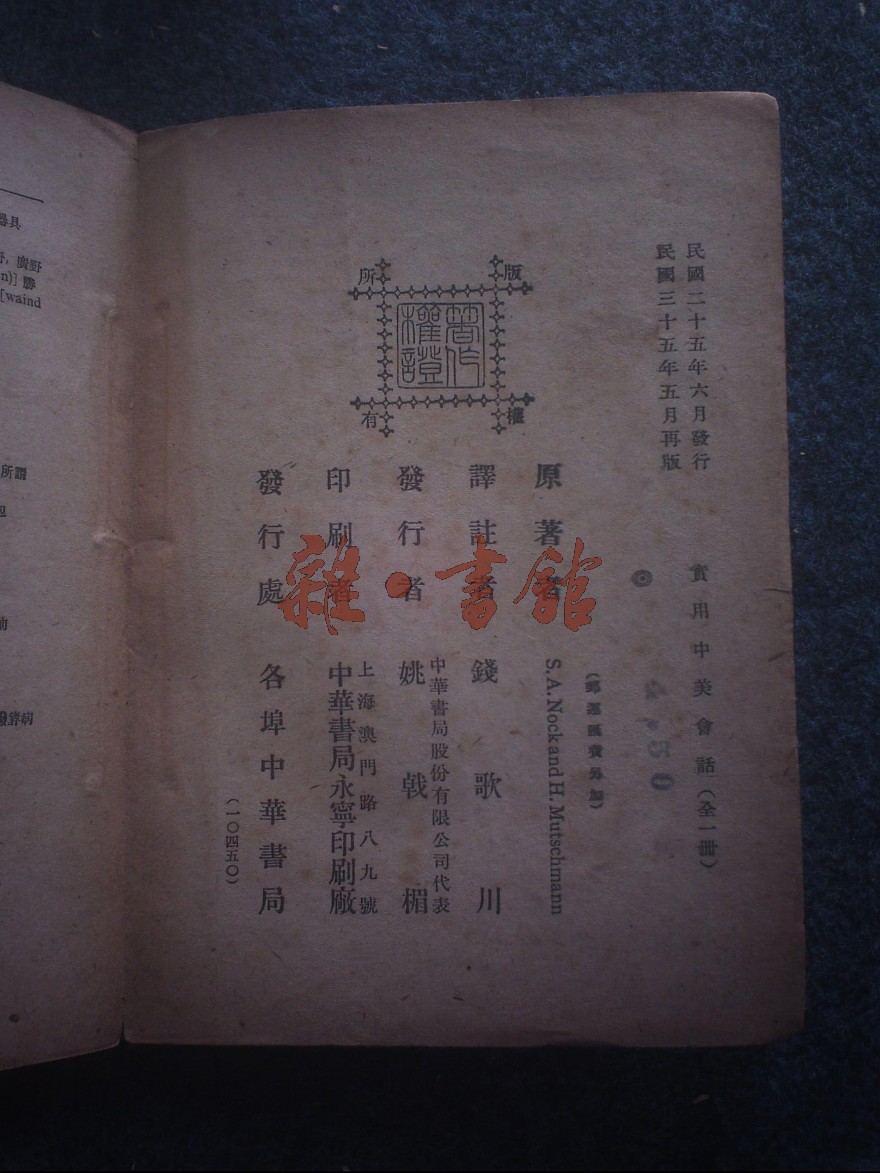 民國二十五年六月發行
民國三十五年五月再版
實用中美會話（全一冊）
◎
4.50
（郵運匯費另加）
原著者 S. A. Nock and H. Mutschmann
譯註者 錢歌川
中華書局股份有限公司代表
發行者 姚戟楣
上海澳門路八九號
印刷者 中華書局永寧印刷廠
發行處 各埠中華書局
（一〇四五〇）
版權所有
著作權證
雜·書館
器具
廣野
n)] 勝
[waind
所謂